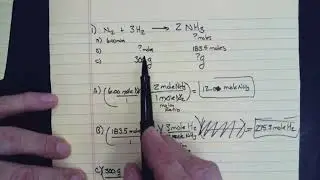 1) N₂ + 3H₂ → 2 NH₃
A) 6.00 mole ? moles
B) ? moles 183.5 moles
C) 300g ? g
A) (6.00 mole N₂ / 1) (2 mole NH₃ / 1 mole N₂) = 12.00 mole NH₃
mole Ratio
B) (183.5 mole / 1) (3 mole H₂ / mole NH₃) = 275.3 mole H₂
C) (300. g